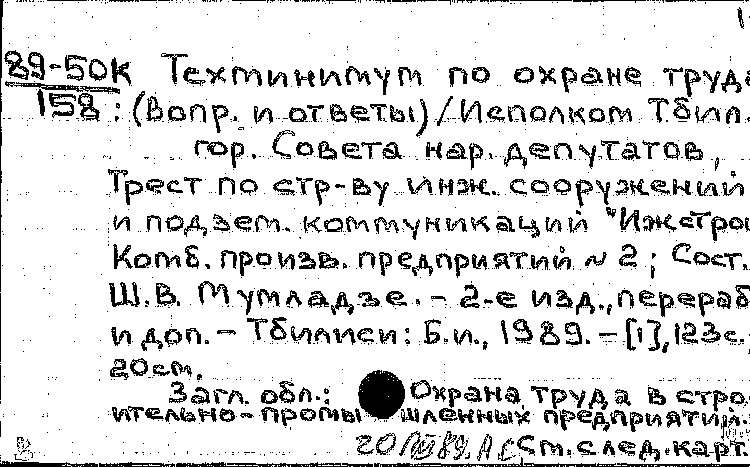 1
89-50к Техминимум по охране труда
158 : (Вопр. и ответы) / Исполком Тбил.
гор. Совета нар. депутатов,
Трест по стр-ву инж. сооружений
и подзем. коммуникаций "Ижстрой
Комб. произв. предприятий № 2; Сост.
Ш.В. Мумладзе. - 2-е изд., перераб
и доп. - Тбилиси: Б.и., 1989. - [1], 123 с.;
20 см.
Загл. обл.: Охрана труда в стро
ительно-промышленных предприятий.
См. след. карт.